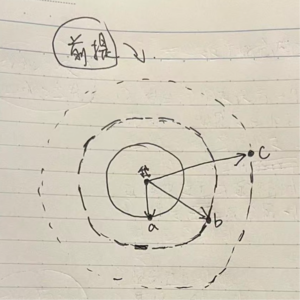 前提
a
b
C